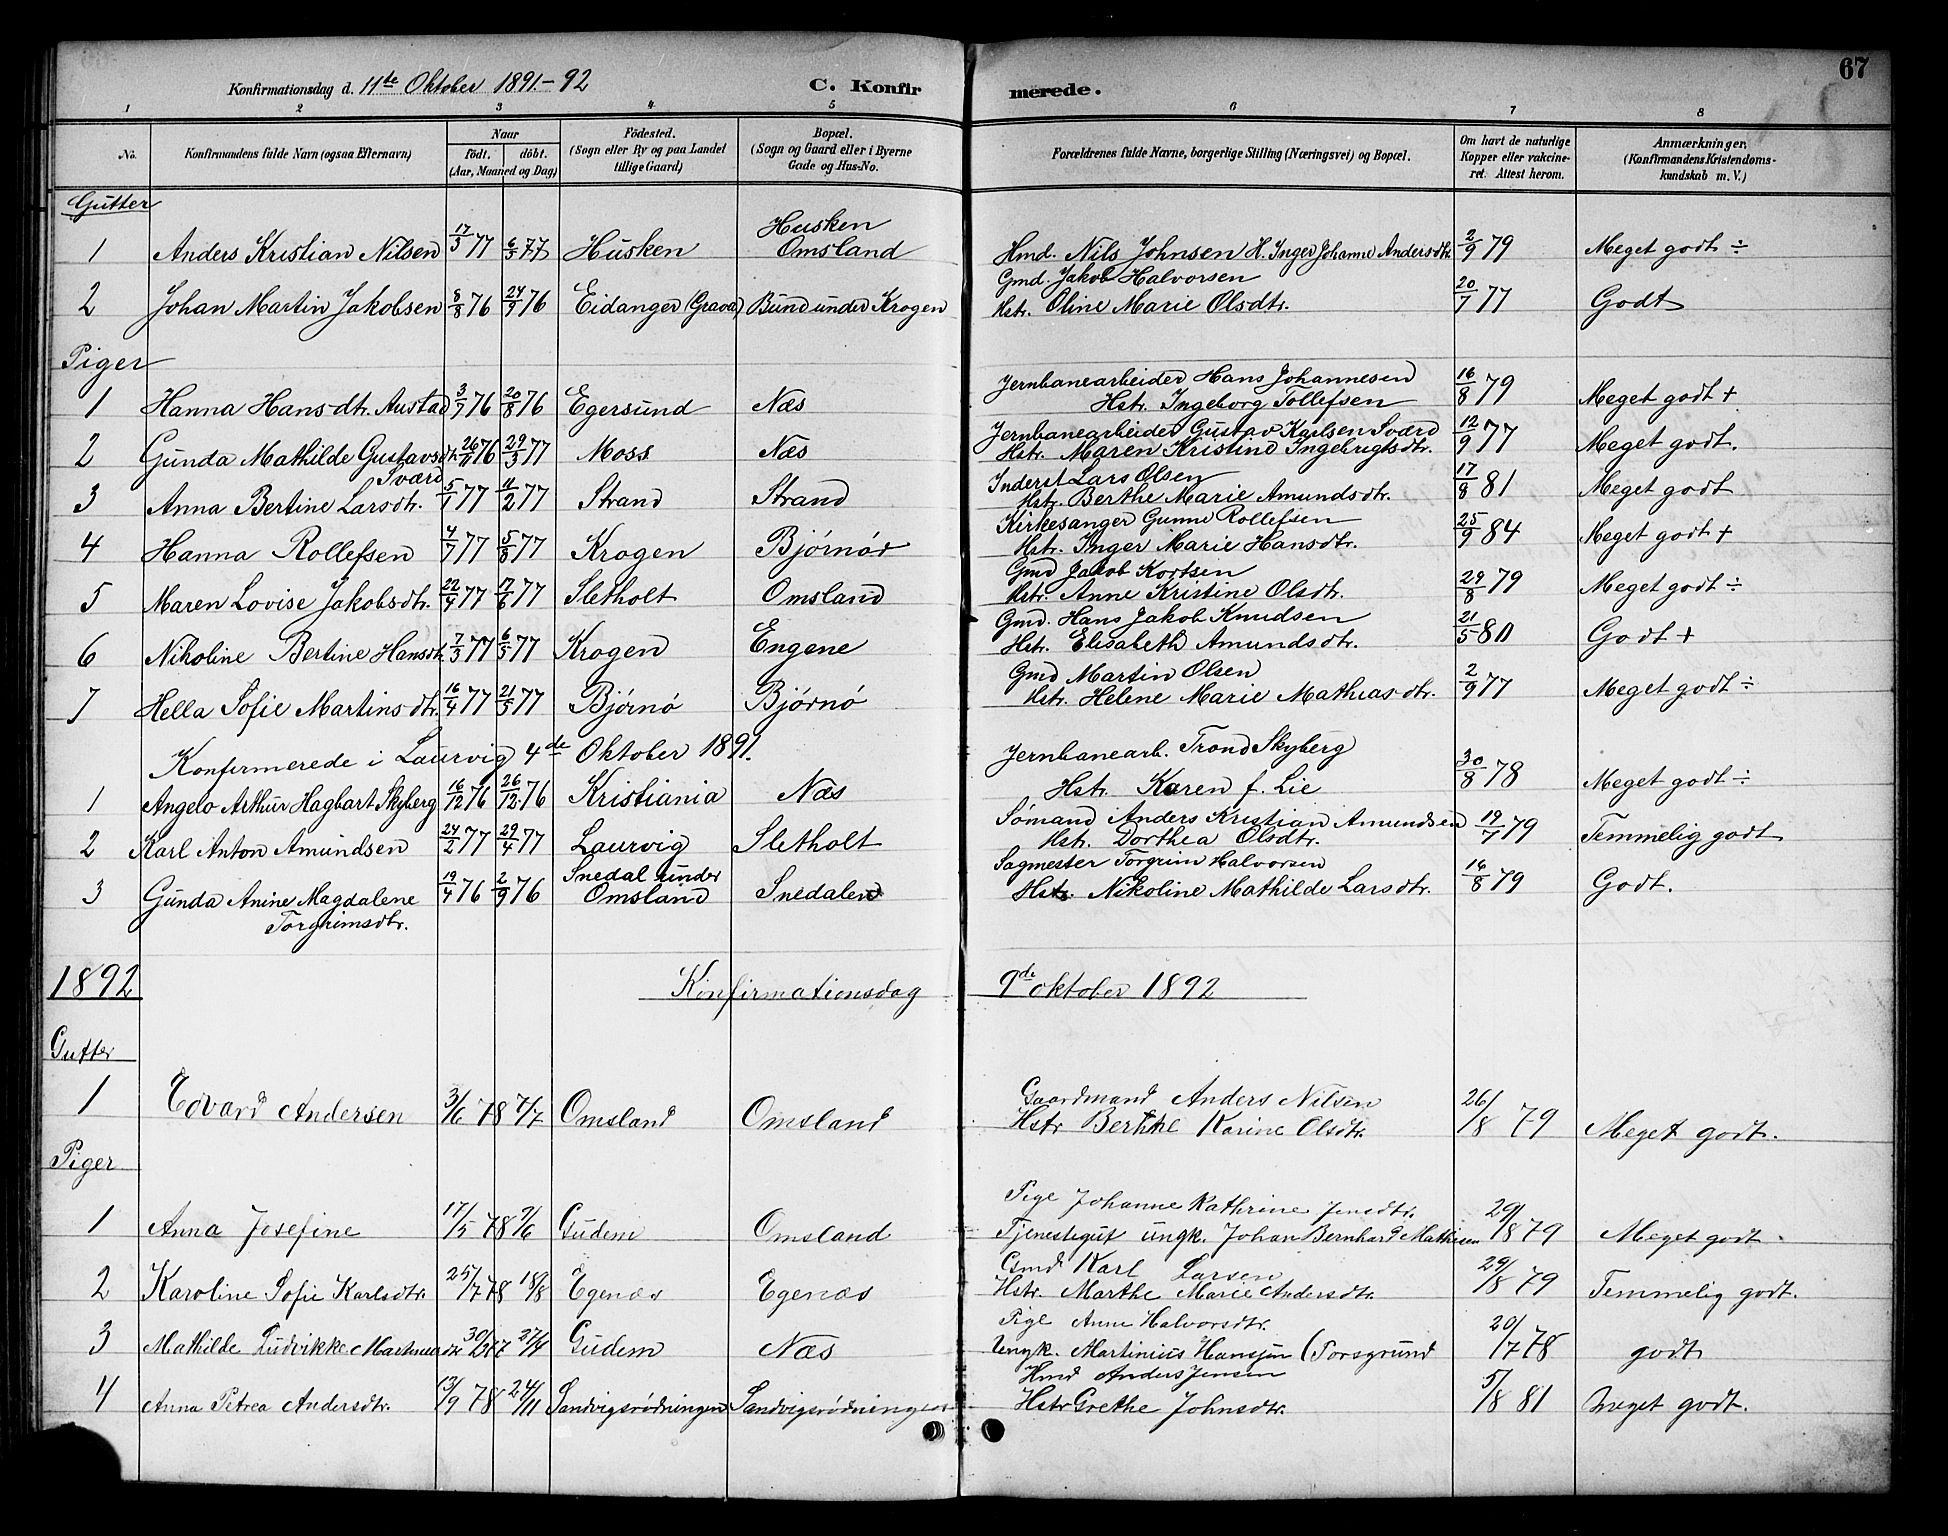 67
Konfirmationsdag d. 11te Oktober 1891.-92 C. Konfirmerede.
1 2 3 4 5 6 7 8
No. Konfirmandens fulde Navn (ogsaa Efternavn) Naar födt. döbt. (Aar, Maaned og Dag) Födested. (Sogn eller By og paa Landet tillige Gaard) Bopæl. (Sogn og Gaard eller i Byerne Gade og Hus-No. Forældrenes fulde Navne, borgerlige Stilling (Næringsvei) og Bopæl. Om havt de naturlige Kopper eller vakcineret. Attest herom. Anmærkninger. (Konfirmandens Kristendomskundskab m. V.)
Gutter
1 Anders Kristian Nilsen 17/3 77 6/5 77 Husken Husken Omsland Hmd. Nils Johnsen H. Inger Johanne Andersdtr. 2/9 79 Meget godt ÷
2 Johan Martin Jakobsen 8/8 76 24/9 76 Eidanger (Grava) Bund under Krogen Gmd. Jakob Halvorsen Hstr. Oline Marie Olsdtr. 20/7 77 Godt
Piger
1 Hanna Hans-dtr. Austad 3/7 76 20/8 76 Egersund Næs Jernbanearbeider Hans Johannesen Hstr. Ingeborg Tollefsen 16/8 79 Meget godt +
2 Gunda Mathilde Gustavsdtr. Sværd 26/11 76 29/3 77 Moss Næs Jernbanearbeider Gustav Karlsen Sværd Hstr. Maren Kristine Ingebrigtsdtr. 12/9 77 Meget godt.
3 Anna Bertine Larsdtr. 5/1 77 11/2 77 Strand Strand Inderst Lars Olsen Hstr. Berthe Marie Amundsdtr. 17/8 81 Meget godt
4 Hanna Rollefsen 4/7 77 5/8 77 Krogen Bjørnø Kirkesanger Gunne Rollefsen Hstr. Inger Marie Hansdtr. 25/9 84 Meget godt +
5 Maren Lovise Jakobsdtr. 22/4 77 17/6 77 Sletholt Omsland Gmd Jakob Kortsen Hstr. Anne Kristine Olsdtr. 29/8 79 Meget godt ÷
6 Nikoline Bertine Hansdtr. 7/3 77 6/5 77 Krogen Engene Gmd. Hans Jakob Knudsen Hstr. Elisabeth Amundsdtr. 21/5 80 Godt +
7 Hella Sofie Martinsdtr. 16/4 77 21/5 77 Bjørnø Bjørnø Gmd Martin Olsen Hstr. Helene Marie Mathiasdtr. 2/9 77 Meget godt ÷
Konfirmerede i Laurvig 4de Oktober 1891.
1 Angelo Arthur Hagbart Skyberg 16/12 76 26/12 76 Kristiania Næs Jernbanearb. Trond Skyberg Hstr. Karen f. Lie 30/8 78 Meget godt ÷
2 Karl Anton Amundsen 24/2 77 29/4 77 Laurvig Sletholt Sømand Anders Kristian Amundsen Hstr. Dorthea Olsdtr. 19/7 79 Temmelig godt
3 Gunda Anine Magdalene Torgrimsdtr. 19/4 76 2/9 76 Snedal under Omsland Snedalen Sagmester Torgrim Halvorsen Hstr. Nikoline Mathilde Larsdtr. 16/8 79 Godt.
1892 Konfirmationsdag 9de oktober 1892
Gutter
1 Edvard Andersen 3/6 78 7/7 Omsland Omsland Gaardmand Anders Nilsen Hstr Berthe Karine Olsdtr. 26/8 79 Meget godt.
Piger
1 Anna Josefine 17/5 78 9/6 Gudem Omsland Pige Johanne Kathrine Jensdtr. Tjenestegut ungk. Johan Bernhard Mathisen 29/8 79 Meget godt.
2 Karoline Sofie Karlsdtr. 25/7 78 18/8 Egenæs Egenæs Gmd Karl Larsen Hstr. Marthe Marie Andersdtr. 29/8 79 Temmelig godt.
3 Mathilde Ludvikke 27/4 Gudem Næs Pige Anne Halvorsdtr. Ungk. Martinius Hansen (Porsgrund 20/7 78 godt
4 Anna Petrea Andersdtr. 13/9 78 24/11 Sandvigsrødningen Sandvigsrødningen Hmd Anders Jensen Hstr Grethe Johnsdtr. 5/8 81 Meget godt.